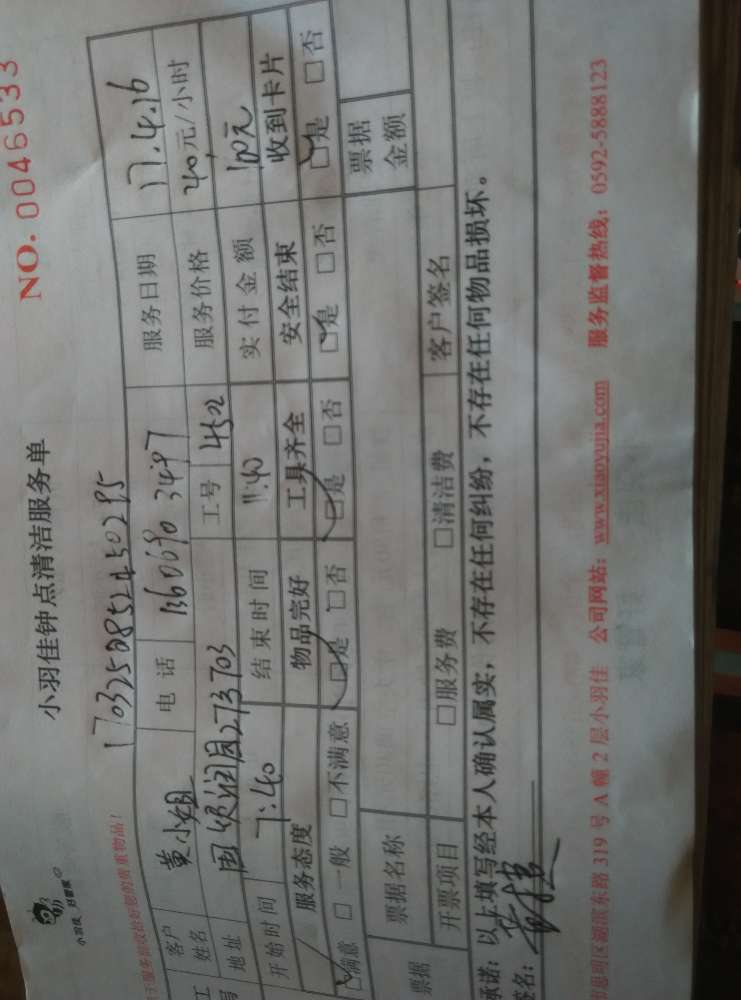 小羽佳 好管家
小羽佳钟点清洁服务单
NO. 0046533
于服务前收拾好您的贵重物品！
170325085242450295
客户姓名 黄小姐 电话 13606903497 服务日期 17.4.16
地址 273703 工号 4502 服务价格 40元/小时
开始时间 7:40 结束时间 11:40 实付金额 160元
服务态度 物品完好 工具齐全 安全结束 收到卡片
□满意 □一般 □不满意 □是 □否 □是 □否 □是 □否 □是 □否
票据 票据名称 票据金额
开票项目 □服务费 □清洁费 客户签名
承诺：以上填写经本人确认属实，不存在任何纠纷，不存在任何物品损坏。
签名：
思明区湖滨东路 319 号 A 幢 2 层小羽佳 公司网站：www.xiaoyujia.com 服务监督热线：0592-5888123